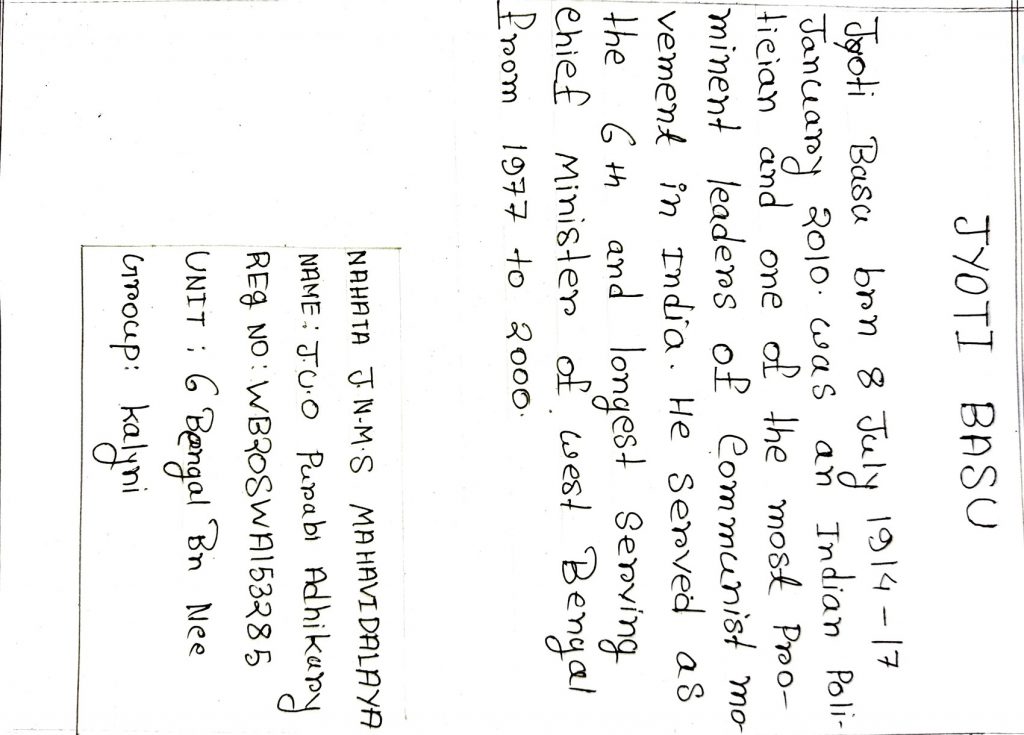 JYOTI BASU
Jyoti Basu brn 8 July 1914-17
January 2010. was an Indian Poli-
tician and one of the most Pro-
minent leaders of Communist mo
vement in India. He Served as
the 6th and longest Serving
chief Minister of west Bengal
From 1977 to 2000.
NAHATA J.N.M.S MAHAVIDALAYA
NAME: J.U.O Purabi Adhikary
REG NO: WB20SWA153285
UNIT: 6 Bengal Bn Nee
Group: kalyni